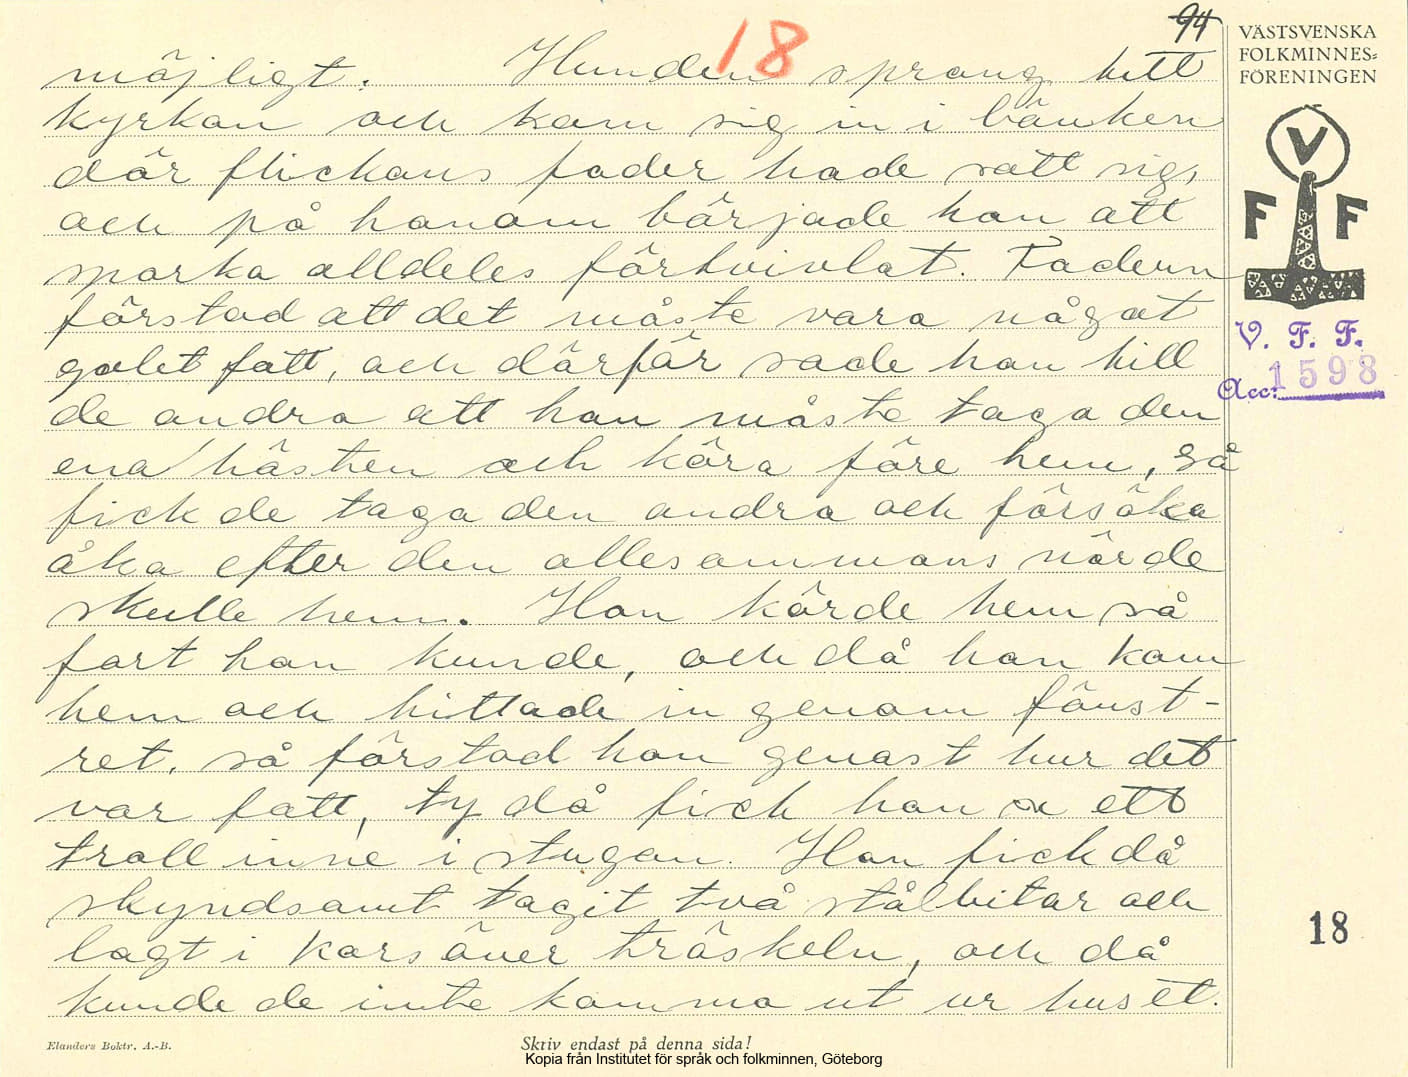 94
18
möjligt. Hunden sprang till
kyrkan och kom sig in i bänken
där flickans fader hade satt sig,
och på honom började han att
sparka alldeles förtvivlat. Fadern
förstod att det måste vara något
galet fatt, och därför sade han till
de andra att han måste taga den
ena hästen och köra före hem, så
fick de taga den andra och försöka
åka efter den allesammans när de
skulle hem. Han körde hem så
fort han kunde, och då han kom
hem och tittade in genom fönst-
ret, så förstod han genast hur det
var fatt, ty då fick han se ett
troll inne i stugan. Han fick då
skyndsamt tagit två stålbitar och
lagt i kors över tröskeln, och då
kunde de inte komma ut ur huset.
VÄSTSVENSKA
FOLKMINNES-
FÖRENINGEN
V
F F
V. F. F.
Acc: 1598
18
Elanders Boktr. A.-B.
Skriv endast på denna sida!
Kopia från Institutet för språk och folkminnen, Göteborg